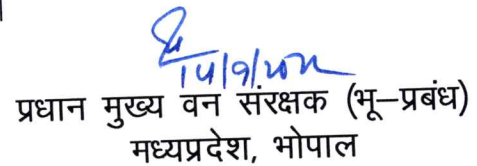 14/9/2022
प्रधान मुख्य वन संरक्षक (भू–प्रबंध)
मध्यप्रदेश, भोपाल